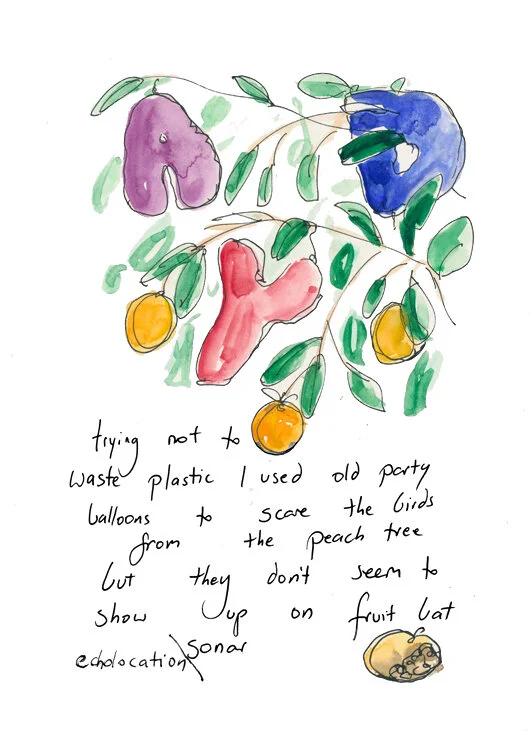 A D
Y
trying not to
waste plastic I used old party
balloons to scare the birds
from the peach tree
but they don't seem to
show up on fruit bat
echolocation\sonar